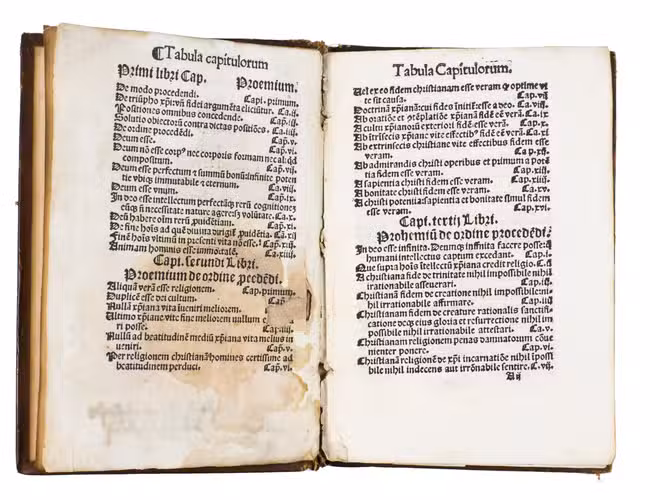 ¶Tabula capitulorum
Primi libri Cap. Proemium.
De modo procedendi. Capi. primum.
De triũpho xp̃i: vñ fidei argumẽta eliciũtur. Ca. ij.
Positiones omnibus concedende. Cap. iij.
Solutio obiectorũ contra dictas positiões. Ca. iiij.
De ordine procedẽdi. Cap. v.
Deum esse. Cap. vi.
Deum nõ esse corpꝰ nec corporis formam nec aliqd
compositum. Cap. vij.
Deum esse perfectum ⁊ summũ bonũ infinite poten
tie vbiqꝫ immutabilẽ ⁊ eternum. Ca. viij.
Deum esse vnum. Ca. ix.
In deo esse intellectum perfectãqꝫ rerũ cognitionẽ
eũqꝫ nõ necessitate nature agere: sꝫ volũtate. Ca. x.
Deũ habere oĩm rerũ ꝓuidẽtiam. Ca. xi.
De fine hoĩs ad quẽ diuina dirigit ꝓuidẽtia. Cã. xij
Finẽ hoĩs vltimũ in presenti vita nõ esse. Cap. xiij.
Animam hominis esse immortalẽ. Ca. xiiij.
Capi. secundi Libri.
Proemium de ordine ꝓcedẽdi.
Aliquã verã esse religionem. Cap. primum.
Duplicẽ esse dei cultum. Cap
Nullã xp̃iana vita īueniri meliorem. Cap.
Ultimo xp̃iane vite fine meliorem nullum
ri posse. Cap. iiij.
Nullũ ad beatitudinẽ mediũ xp̃iana vita melius in
ueniri. Cap. v.
Per religionem christianã homines certissime ad
beatitudinem perduci. Cap. vi.
Tabula Capitulorum.
Uel ex eo fidem christianam esse veram ꝙ optime vi
te sit causa. Cap. vij
Doctrinã xp̃ianã: cui fides ĩnitit̃: esse a deo. Ca. viij.
Ab oratiõe et ꝯtẽplatiõe xp̃iana fidẽ eẽ verã. Ca. ix
A cultu xp̃ianorũ exteriori fidẽ esse verã. Ca. x.
Ab ĩtrisecis xp̃iane vite effectibꝰ fidẽ eẽ verã. Ca. xi.
Ab extrinsecis christiane vite effectibus fidem esse
veram. Ca. xij.
Ab admirandis christi operibus et primum a potẽ
tia fidem esse veram. Cap. xiij.
A sapientia christi fidem esse veram. Cap. xiiij.
A bonitate christi fidem esse veram. Ca. xv.
A christi potentia: sapientia et bonitate simul fidem
esse veram. Cap. xvi.
Capi. tertij Libri.
Prohemiũ de ordine procedẽdi.
In deo esse infinita. Deumqꝫ infinita facere posse: q̃
humani intellectus captum excedant. Cap. i.
Que supra hoĩs ĩtellectũ xp̃iana credit religio. C. ij
A christiana fide de trinitate nihil impossibile nihil
irrationabile asseuerari. Cap. iij.
Christianã fidem de creatione nihil impossibile: ni
hil irrationabile affirmare. Cap. iiij
Christianam fidem de creature rationalis sanctifi
catione deqꝫ eius gloria et resurrectione nihil im
possibile nihil irrationabile attestari. Ca. v.
Christianam religionem penas damnatorum cõue
nienter ponere. Cap. vi.
Christianã religionẽ de xp̃i incarnatiõe nihil ĩpossi
bile nihil indecens aut irrõnabile sentire. C. vij.
A ij